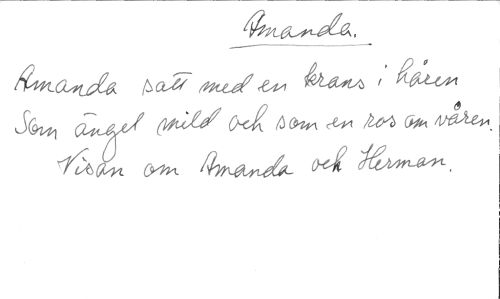 Amanda.
Amanda satt med en krans i håren
Som ängel mild och som en ros om våren.
Visan om Amanda och Herman.